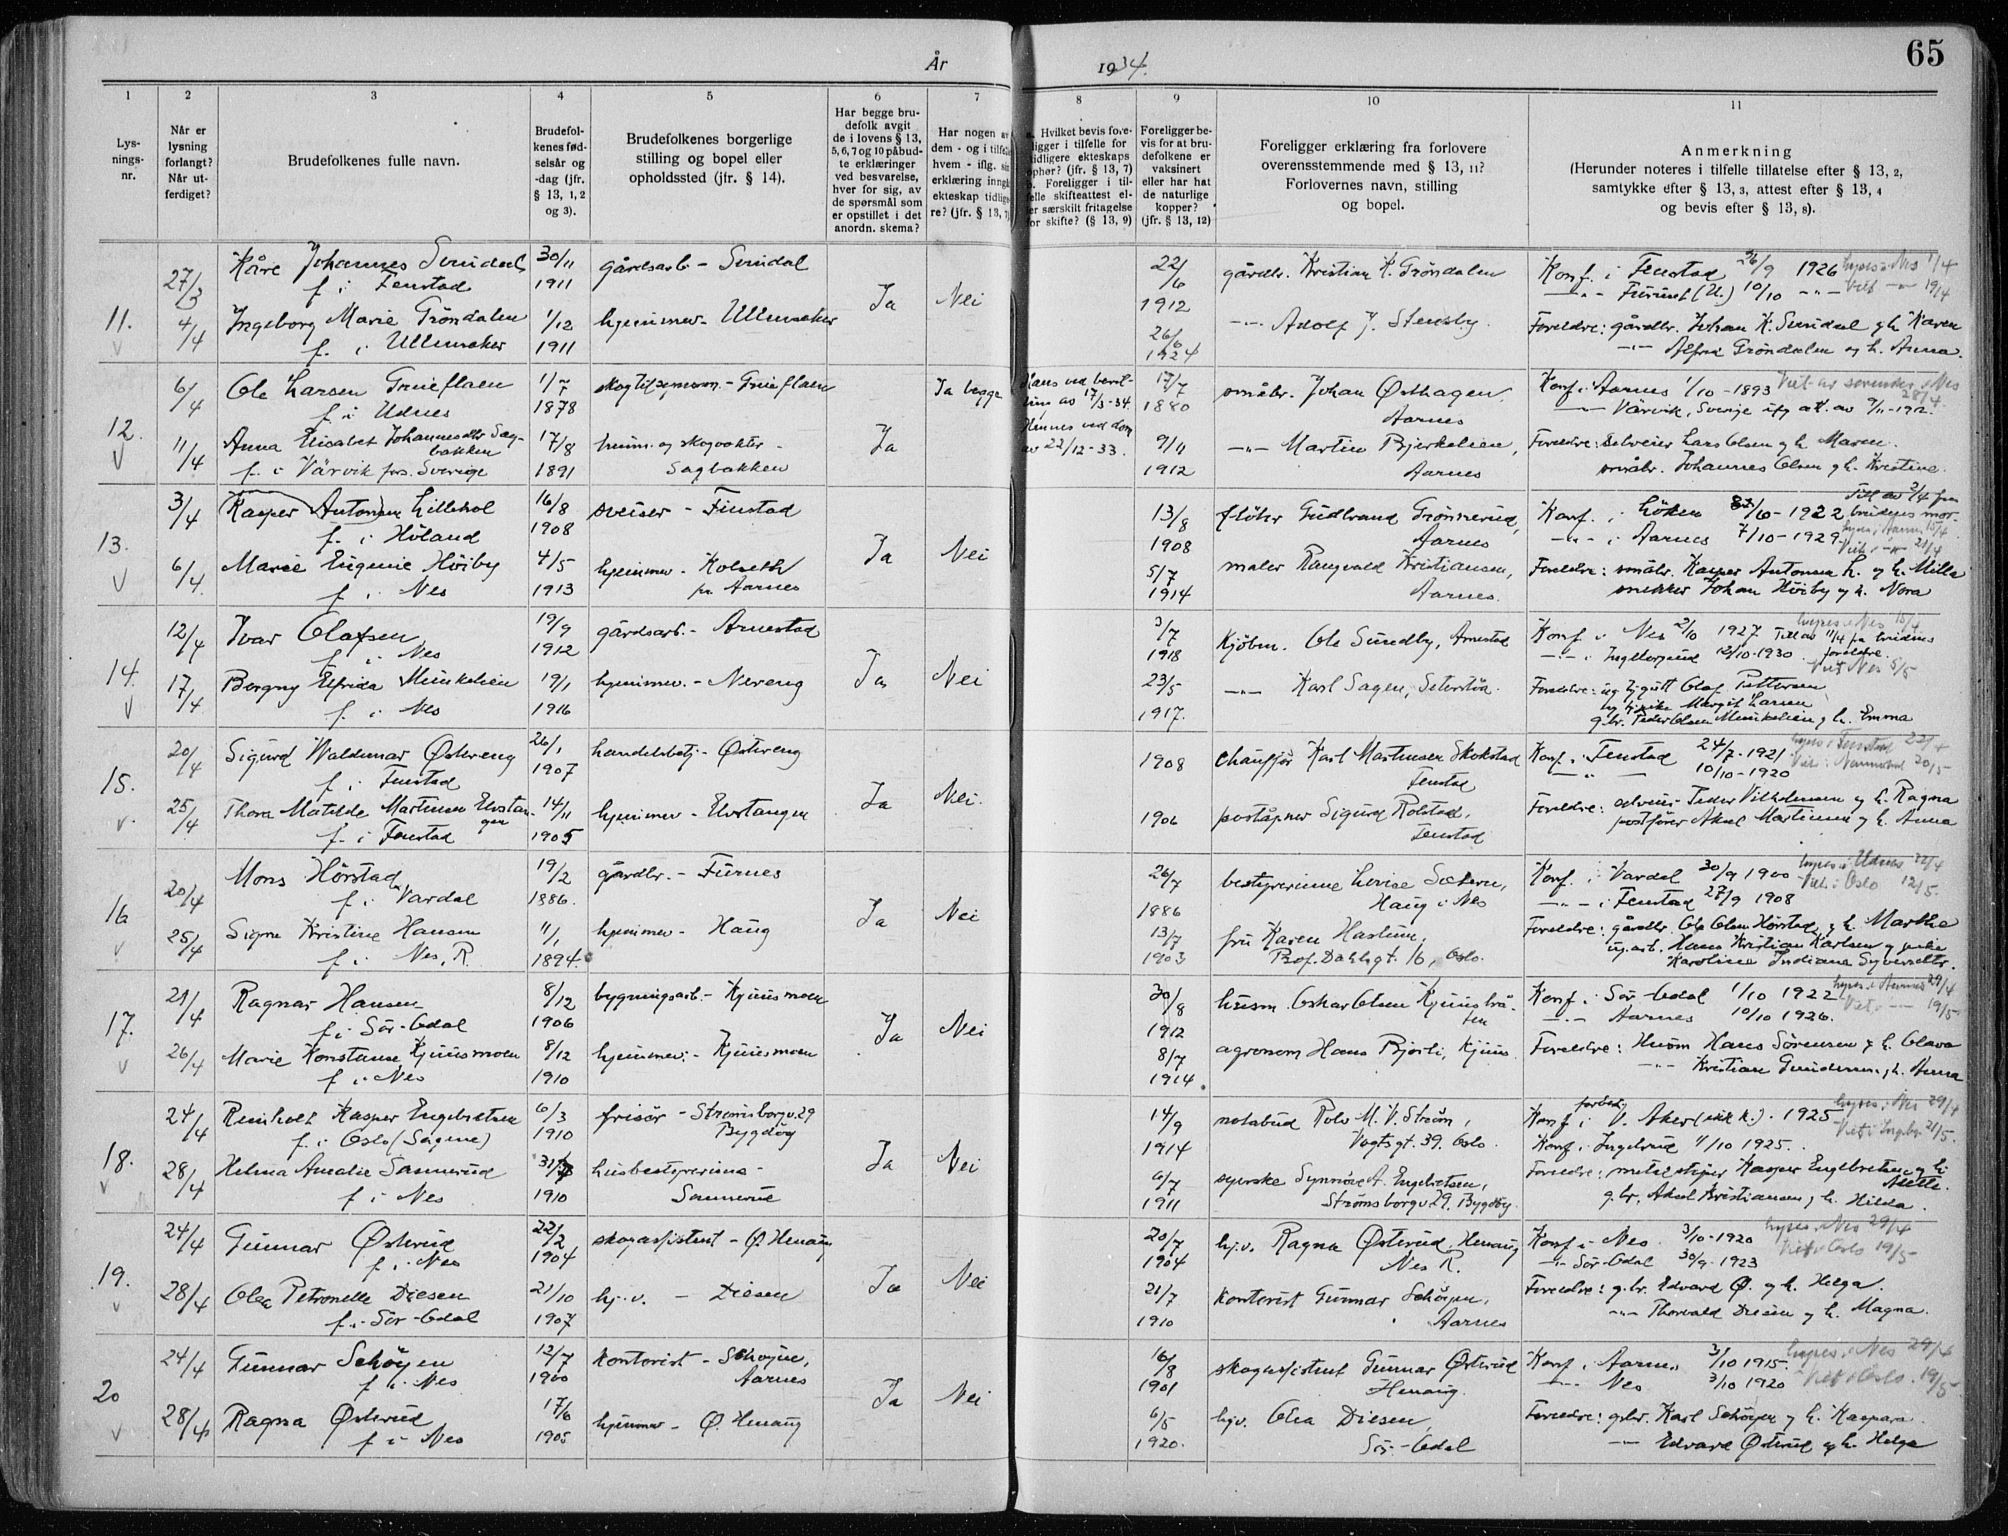 År 1934.
65
1
2
3
4
5
6
7
8
9
10
11
Lys-
nings-
nr.
Når er
lysning
forlangt?
Når ut-
ferdiget?
Brudefolkenes fulle navn.
Brudefol-
kenes fød-
selsår og
-dag (jfr.
§ 13, 1, 2
og 3).
Brudefolkenes borgerlige
stilling og bopel eller
opholdssted (jfr. § 14).
Har begge bru-
defolk avgit
de i lovens § 13,
5, 6, 7 og 10 påbud-
te erklæringer
ved besvarelse,
hver for sig, av
de spørsmål som
er opstillet i det
anordn. skema?
Har nogen av
dem - og i tilfelle
hvem - iflg. sin
erklæring inngå
ekteskap tidlige-
re? (jfr. § 13, 7)
Hvilket bevis fore-
ligger i tilfelle for
tidligere ekteskaps
ophør? (jfr. § 13, 7)
b. Foreligger i til-
felle skifteattest el-
ler særskilt fritagelse
for skifte? (§ 13, 9)
Foreligger be-
vis for at bru-
defolkene er
vaksinert
eller har hat
de naturlige
kopper?
(jfr. § 13, 12)
Foreligger erklæring fra forlovere
overensstemmende med § 13, 11?
Forlovernes navn, stilling
og bopel.
Anmerkning
(Herunder noteres i tilfelle tillatelse efter § 13, 2,
samtykke efter § 13, 3, attest efter § 13, 4
og bevis efter § 13, 8).
11.
27/3
4/4
Kåre Johannes Sundal
f. i Fenstad
30/11
1911
gårdsarb - Sundal
Ingeborg Marie Grøndalen
f. i Ullensaker
1/12
1911
hjemmev - Ullensaker
Ja
Nei
22/6
1912
26/6
1924
gårdbr. Kristian K. Grøndalen
-"- Adolf J. Stensby.
Konf. i Fenstad 26/9 1926 lyses i Nes 1/4
-"- Furuset (U.) 10/10 -"- Viet -"- 19/4
Foreldre: gårdbr. Johan K. Sundal og h. Karen
-"- Alfred Grøndalen og h. Anna.
12.
6/4
11/4
Ole Larsen Grueflaen
f. i Udnes
1/7
1878
- Grueflaen
Anna Elisabet Johannesdtr Sag-
bakken
f. i Värvik prs. Sverige
17/8
1891
Sagbakken
Ja
Ja begge
Hans ved bevil-
av 17/3-34.
Hennes ved dom
av 22/12-33.
17/7
1880
9/11
1912
småbr. Johan Østhagen,
Aarnes
-"- Martin Bjerkelien,
Aarnes
Konf. i Aarnes 1/10 - 1893 Viet av sorenskr. i Nes
28/4
-"- Värvik, Sverige
Foreldre: selveier Lars Olsen og h. Maren.
småbr. Johannes Olsen og h. Kristine.
13.
3/4
6/4
Kasper Antonsen Lillehol
f. i Høland
16/8
1908
sveiser - Finstad
Marie Eugenie Høiby
f. i Nes
4/5
1913
hjemmev - Kolseth
pr Aarnes
Ja
Nei
13/8
1908
5/7
1914
fløter Gudbrand Grønnerud,
Aarnes
maler Rangvald Kristiansen,
Aarnes.
Till. av 3/4 fra
Konf. i Löken 1922 brudens mor.
lyses i Aarnes 15/4
-"- i Aarnes 7/10 - 1929. Viet i -"- 21/4
Foreldre: småbr. Kasper Antonsen L. og h. Milla
snekker Johan Høiby og h. Nora
14.
12/4
17/4
Ivar Olafsen
f. i Nes
19/9
1912
gårdsarb. - Arnestad
Borgny Elfrida Munkelien
f. i Nes
19/1
1916
hjemmev. - Nereng
Ja
Nei
3/7
1918
23/5
1917.
Kjøbm. Ole Sundby, Arnestad
-"- Karl Sagen, Seterstøa.
lyses i Nes 15/4
Konf. i Nes 2/10 1927 Till. av 11/4 fra brudens
-"- i Ingeborgrud 12/10 - 1930. foreldre.
Viet Nes 5/5
Foreldre: ug. Olaf Pettersen
Margit Larsen
g.br. Peder Olsen Munkelien og h. Emma
15.
20/4
25/4
Sigurd Waldemar Østreng
f. i Fenstad
26/1
1907
handelsbetj - Østreng
Thora Matilde Martinsen Elvstan-
gen
f. i Fenstad
14/11
1905
hjemmev - Elvstangen
Ja
Nei.
1908
1906
Chauffør Karl Martinsen Skokstad
Fenstad
poståpner Sigurd Rolstad,
Fenstad
Konf. i Fenstad 24/7 - 1921 lyses i Fenstad 22/4
10/10 - 1920 Viet i Nannestad 20/5
Foreldre: selveier Peder Vilhelmsen og h. Ragna
postfører Aksel Martinsen og h. Anna
16
20/4
25/4
Mons Hørstad
f. i Vardal
19/2
1886.
gårdbr. - Furnes
Signe Kristine Hansen
f. i Nes, R.
11/1
1894.
hjemmev - Haug
Ja
Nei
26/7
1886
13/7
1903
bestyrerinne Lovise Sætern,
Haug i Nes
fru Karen Haslum,
Prof. Dahlsgt. 16, Oslo.
Konf. i Vardal 30/9 1900 lyses i Udnes 22/4
-"- i Fenstad 27/9 1908 Viet i Oslo 12/5.
Foreldre: gårdbr. Ole Olsen Hørstad og h. Marthe
ug.arb. Hans Kristian Karlsen og pike
Karoline Indiana Syversdtr.
17.
21/4
26/4
Ragnar Hansen
f. i Sör-Odal
8/12
1906
bygningsarb - Kjuusmoen
Marie Konstanse Kjuusmoen
f. i Nes
8/12
1910
hjemmev. - Kjuusmoen
Ja
Nei
30/8
1912
8/7
1914.
husm. Oskar Olsen Kjuusbrå-
ten
agronom Hans Bjørli, Kjuus.
Konf. i Sör-Odal 1/10 1922 lyses i Aarnes 29/4
-"- Aarnes 10/10 1926. Viet i -"- 19/5
Foreldre: Husm Hans Sørensen og h. Olava
-"- Kristian Gundersen og h. Anna
18.
24/4
28/4
Reinholt Kasper Engebretsen
f. i Oslo (Sagene)
6/3
1910
frisør - Strømsborgv. 29
Bygdøy
Helma Amalie Sannerud
f. i Nes
1910
husbestyrerinne -
Sannerud
Ja
Nei
14/9
1914
6/7
1911
notabud Rolv M. V. Strøm,
Vogtsgt. 39. Oslo.
syerske Synnøve A. Engebretsen,
Strømsborgv 29. Bygdøy.
Konf. i V. Aker 1925 lyses i Nes 29/4
Konf. i Ingebrud 4/10 1925. Viet i Ingebr. 21/5.
Foreldre: metalstøper Kasper Engebretsen og h.
Mette.
g.br. Aksel Kristiansen og h. Hilda.
19.
24/4
28/4
Gunnar Østerud
f. i Nes
22/2
1904
skogassistent - Ø. Henaug
Olea Petronelle Diesen
f. i Sör-Odal
21/10
1907
hj.v. - Diesen
Ja
Nei
20/7
1904
21/7
1910
hj.v. Ragna Østerud, Henaug
Nes R.
kontorist Gunnar Schøyen,
Aarnes
Konf. i Nes 3/10 - 1920 lyses i Nes 29/4
-"- Sör-Odal 30/9 - 1923 Viet i Oslo 19/5
Foreldre: g.br. Edvard Ø. og h. Helga.
-"- Thorvald Diesen og h. Magna.
20
24/4
28/4
Gunnar Schøyen
f. i Nes
12/7
1900
kontorist - Schøyen,
Aarnes
Ragna Østerud
f. i Nes
17/6
1905
hjemmev - Ø. Henaug
Ja
Nei
16/8
1901
6/5
1920.
skogassistent Gunnar Østerud
Henaug.
hjv. Olea Diesen,
Sör-Odal
Konf. i Aarnes 3/10 1915. lyses i Nes 29/4
-"- Nes 3/10 1920 Viet i Oslo. 19/5.
Foreldre: gbr. Karl Schøyen og h. Kaspara
-"- Edvard Østerud og h. Helga